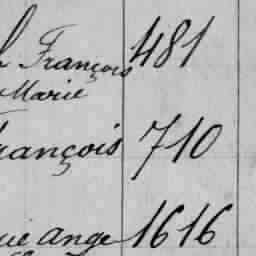 François 481
Marie
rançois 710
ange 1616